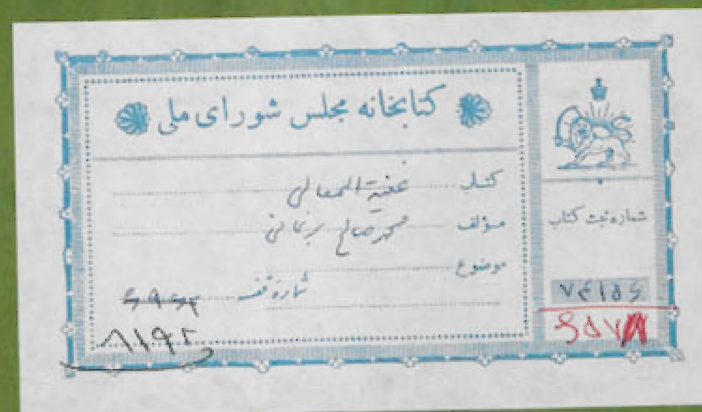 کتابخانه مجلس شورای ملی
کتاب
مؤلف محمد صالح برغانی
موضوع
شماره قفسه
۸۱۹۲
شماره ثبت کتاب
۷۴۱۵۶